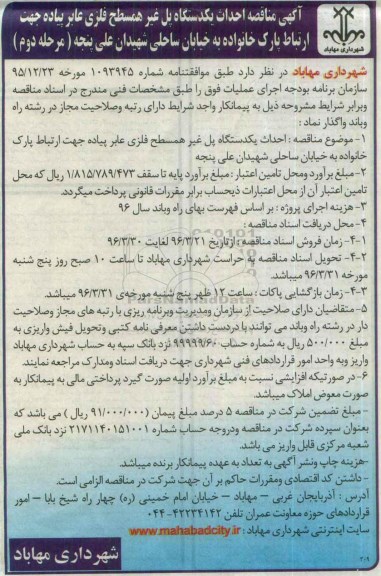 آگهی مناقصه احداث یکدستگاه پل غیر همسطح فلزی عابر پیاده جهت
ارتباط پارک خانواده به خیابان ساحلی شهیدان علی پنجه ( مرحله دوم )
شهرداری مهاباد
شهرداری مهاباد در نظر دارد طبق موافقتنامه شماره ۱۰۹۳۹۴۵ مورخه ۹۵/۱۲/۲۳
سازمان برنامه بودجه اجرای عملیات فوق را طبق مشخصات فنی مندرج در اسناد مناقصه
وبرابر شرایط مشروحه ذیل به پیمانکار واجد شرایط دارای رتبه وصلاحیت مجاز در رشته راه
وباند واگذار نماد :
۱- موضوع مناقصه : احداث یکدستگاه پل غیر همسطح فلزی عابر پیاده جهت ارتباط پارک
خانواده به خیابان ساحلی شهیدان علی پنجه
۲- مبلغ برآورد ومحل تامین اعتبار : مبلغ برآورد پایه تا سقف ۱/۸۱۵/۷۸۹/۴۷۳ ریال که محل
تامین اعتبار آن از محل اعتبارات ذیحساب برابر مقررات قانونی پرداخت میگردد.
۳- هزینه اجرای پروژه : بر اساس فهرست بهای راه وباند سال ۹۶
۴- محل دریافت اسناد مناقصه :
۴-۱- زمان فروش اسناد مناقصه : ازتاریخ ۹۶/۳/۲۱ لغایت ۹۶/۳/۳۰
۴-۲- تحویل اسناد مناقصه به حراست شهرداری مهاباد تا ساعت ۱۰ صبح روز پنج شنبه
مورخه ۹۶/۳/۳۱ میباشد.
۴-۳- زمان بازگشایی پاکات : ساعت ۱۲ ظهر پنج شنبه مورخه‌ی ۹۶/۳/۳۱ میباشد.
۵- متقاضیان دارای صلاحیت از سازمان ومدیریت وبرنامه ریزی با رتبه های مجاز وصلاحیت
دار در رشته راه وباند می توانند با دردست داشتن معرفی نامه کتبی وتحویل فیش واریزی به
مبلغ ۵۰۰/۰۰۰ ریال به شماره حساب ۹۹۹۹۹/۶۰ نزد بانک سپه به حساب شهرداری مهاباد
واریز وبه واحد امور قراردادهای فنی شهرداری جهت دریافت اسناد ومدارک مراجعه نمایند.
۶- در صورتیکه افزایشی نسبت به مبلغ برآورد اولیه صورت گیرد پرداختی مالی به پیمانکار به
صورت معوض املاک میباشد.
- مبلغ تضمین شرکت در مناقصه ۵ درصد مبلغ پیمان (۹۱/۰۰۰/۰۰۰ ریال ) می باشد که
بعنوان سپرده شرکت در مناقصه ودروجه حساب شماره ۲۱۷۱۱۴۰۱۵۱۰۰۱ نزد بانک ملی
شعبه مرکزی قابل واریز می باشد.
-هزینه چاپ ونشر آگهی به تعداد به عهده پیمانکار برنده میباشد.
- داشتن کد اقتصادی ومقررات حاکم بر آن جهت شرکت در مناقصه الزامی است.
آدرس : آذربایجان غربی – مهاباد – خیابان امام خمینی (ره) چهار راه شیخ بابا – امور
قراردادهای حوزه معاونت عمران تلفن ۴۲۲۳۴۱۴۲-۰۴۴
سایت اینترنتی شهرداری مهاباد : www.mahabadcity.ir
شهرداری مهاباد